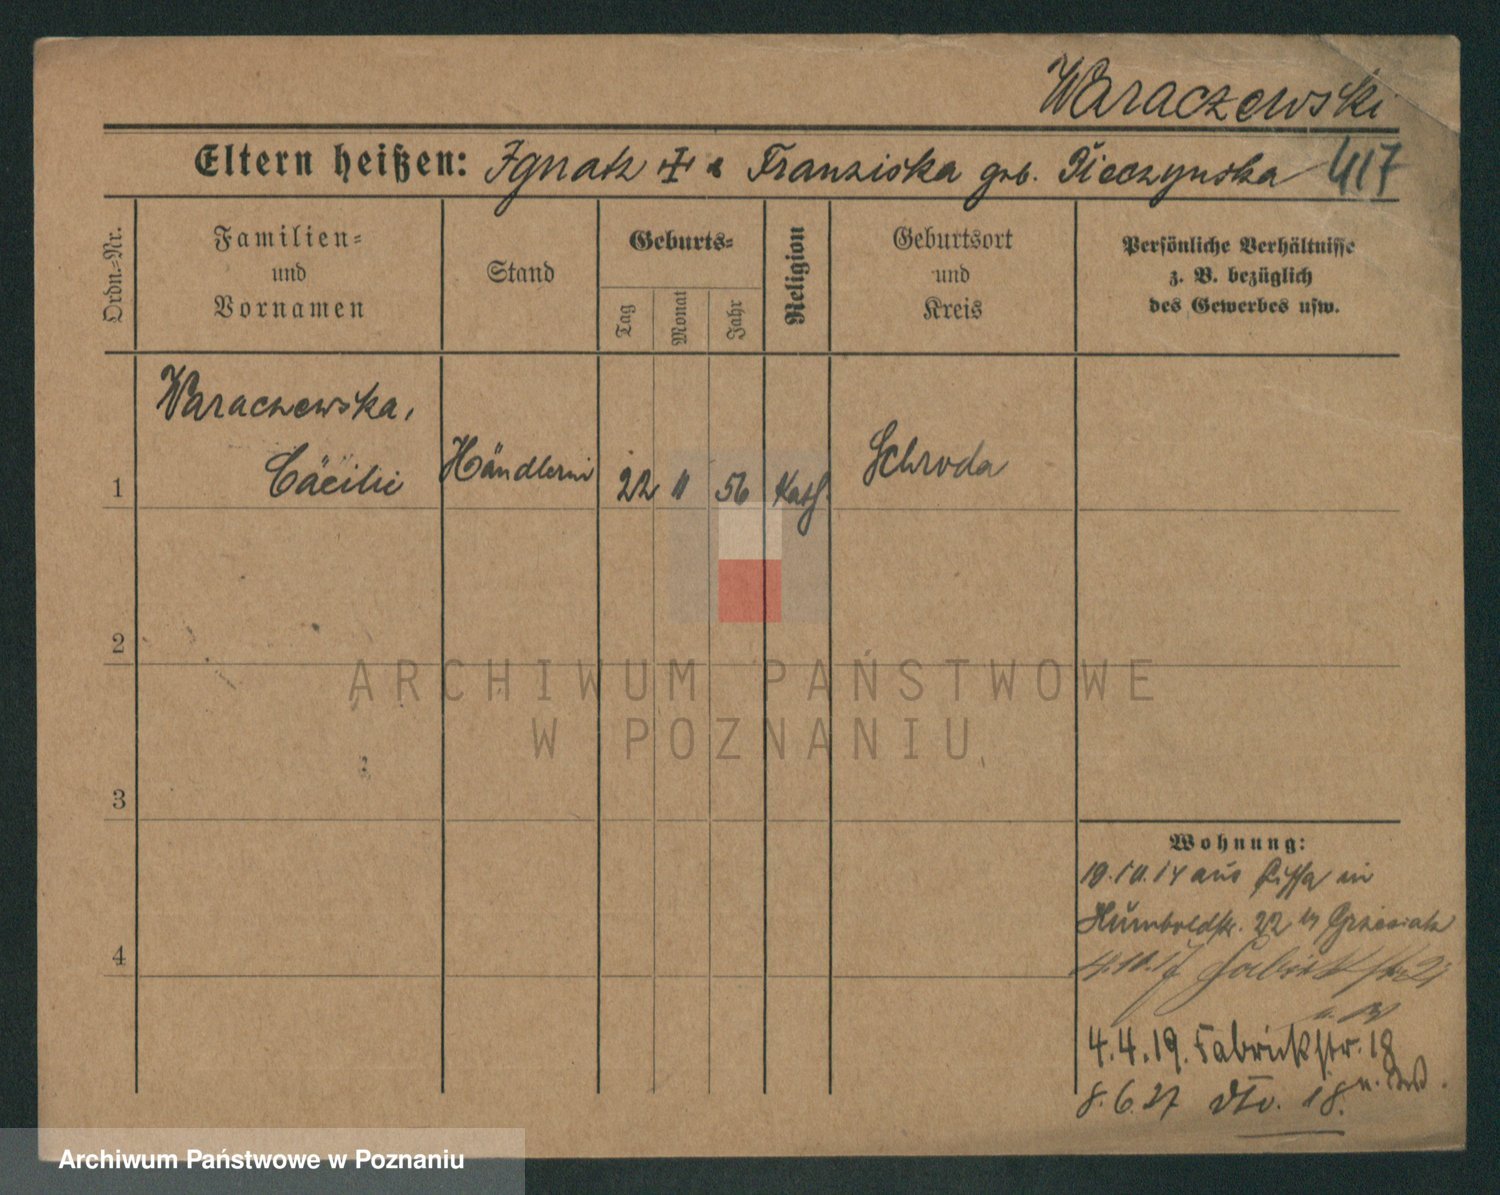 Waraczewski
Eltern heißen: Ignatz ✠ u Franziska geb. Pieczynska 417
Ordn.-Nr.
Familien-
und
Vornamen
Stand
Geburts-
Tag
Monat
Jahr
Religion
Geburtsort
und
Kreis
Persönliche Verhältnisse
z. B. bezüglich
des Gewerbes usw.
Waraczewska,
1 Cäcilie Händlerin 22 11 56 Kath. Schroda
2
3
4
Wohnung:
19.10.14 aus Lissa in
Humboldstr. 22 by Grzesiak
4.10.17 Fabrikstr. 21
4.4.19. Fabrickstr. 18
8.6.27 dto. 18.
ARCHIWUM PAŃSTWOWE
W POZNANIU
Archiwum Państwowe w Poznaniu